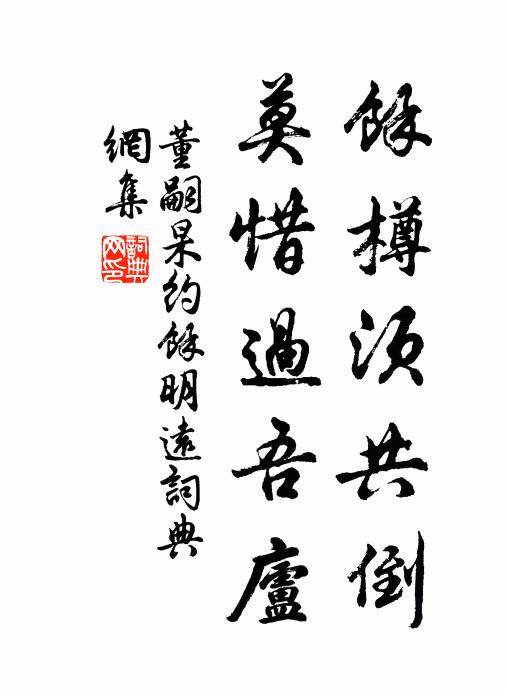 餘樽須共倒
莫惜過吾廬
董嗣杲約餘明遠詞典
網集
詞典
网印